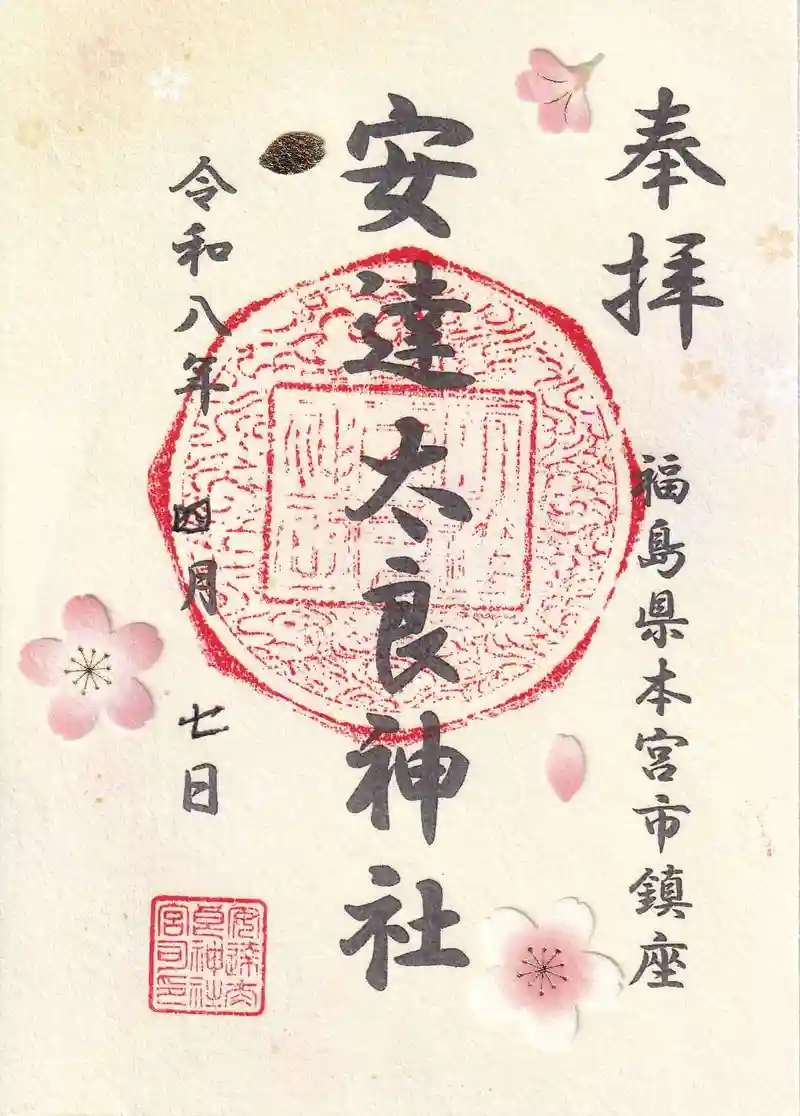 奉拝
福島県本宮市鎮座
安達太良神社
令和八年 四月 七日
安達太
良神社
宮司之印